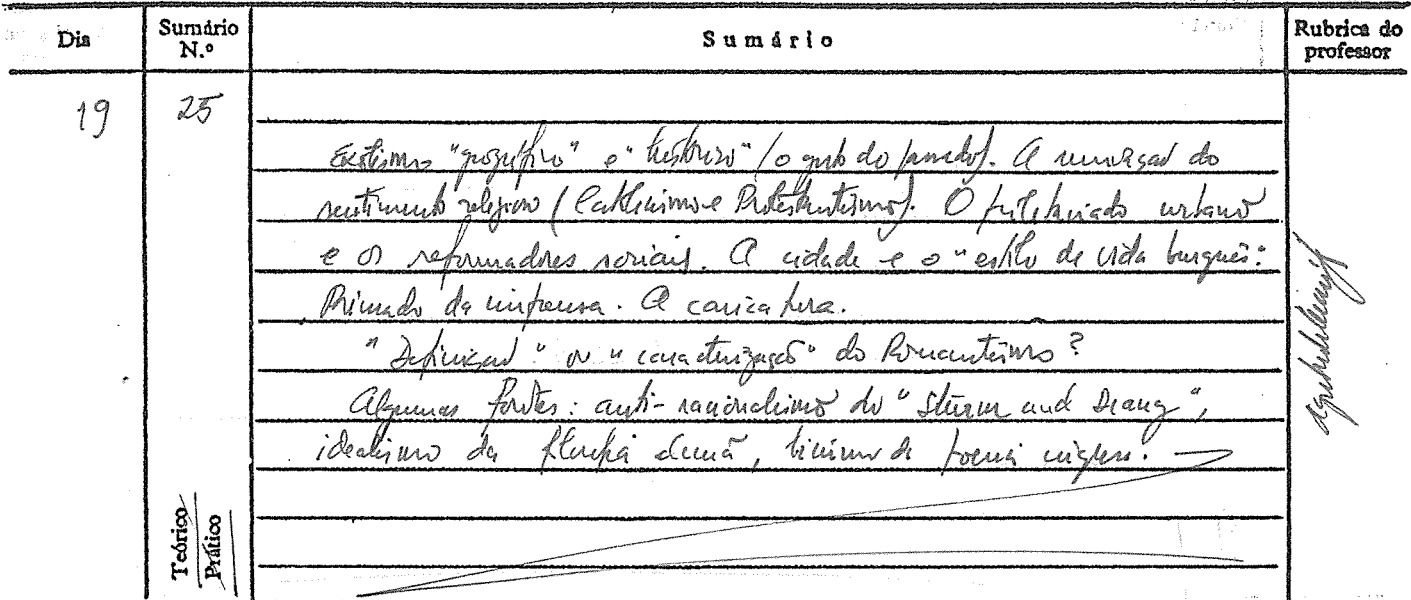 Dia
Sumário N.º
Sumário
Rubrica do professor
19
25
Exotismo "geográfico" e "histórico" (o gosto do passado). A renovação do
sentimento religioso (Catolicismo e Protestantismo). O proletariado urbano
e os reformadores sociais. A cidade e o "estilo de vida burguês":
Primado da imprensa. A caricatura.
"Definição" ou "caracterização" do Romantismo?
Algumas fontes: anti-racionalismo do "Sturm und Drang",
idealismo da filosofia alemã, lirismo da poesia inglesa.
Teórico
Prático